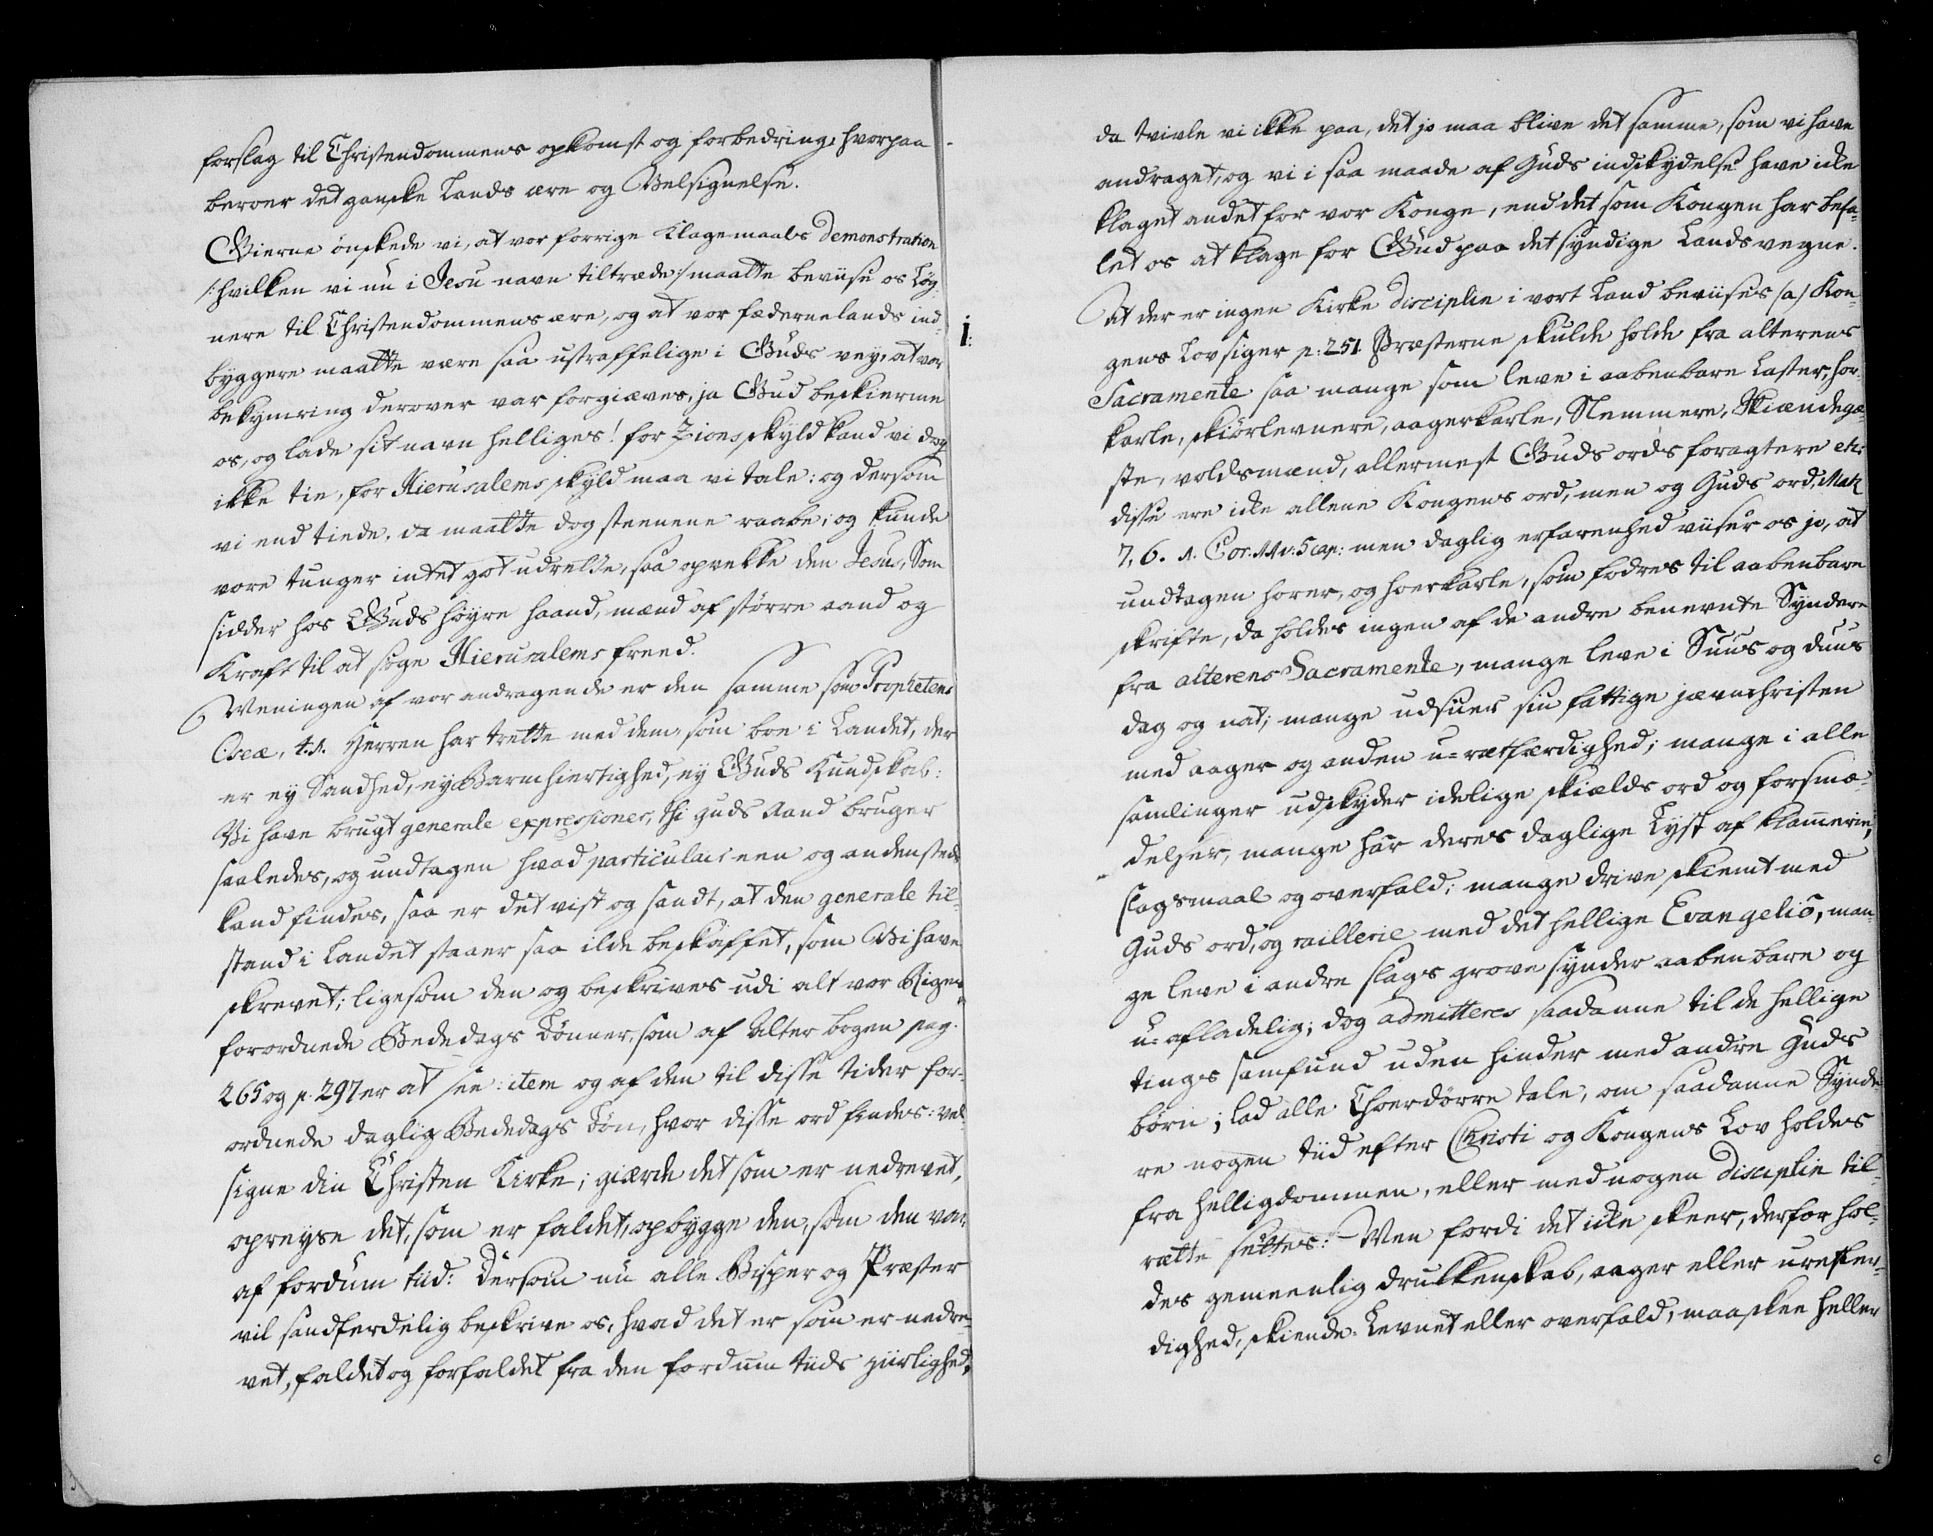 forslag til Christendommens opkomst og forbedring, hvorpaa
beroer det ganske Lands ære og Velsignelse.
Gierne ønskede vi, at vor forrige Klagemaals Demonstration
/: hvilken vi nu i Jesu navn tiltræde :/ maatte beviise os Løg-
nere til Christendommens ære, og at vor fædernelands ind-
byggere maatte være saa ustraffelige i Guds vey, at vor
bekymring derover var forgiæves, ja Gud beskierme
os, og lade sit navn helliges! for Zions skyld kand vi dog
ikke tie, for Hierusalems skyld maa vi tale: og dersom
vi end tiede, da maatte dog steenene raabe; og kunde
vore tunger intet got udrette, saa opvekke den Jesus, Som
sidder hos Guds høyre haand, mænd af større aand og
Kraft til at søge Hierusalems freed.
Meningen af vor andragende er den samme som Prophetens
Oseæ, 4.1. Herren har trette med dem, som boe i Landet, der
er ey Sandhed, ey Barmhiertighed, ey Guds Kundskab:
Vi have brugt generale expressioner, thi guds Aand bruger
saaledes, og undtagen hvad particulair een og andensteds
kand findes, saa er det vist og sandt, at den generale til-
stand i Landet staaer saa ilde beskaffet, som Vi have
skrevet; ligesom den og beskrives udi alt vor Riges
forordnede Bededags Bønner, som af Alter bogen pag.
265 og p. 297 er at see: item og af den til disse tider for-
ordnede daglig Bededags Bøn, hvor disse ord findes: vel
signe din Christen Kirke; giærde det som er nedrevet,
opreyse det, som er faldet, opbygge den, som den var
af fordum tiid: Dersom nu alle Bisper og Præster
vil sandferdelig beskrive os, hvad det er som er nedre-
vet, faldet og forfaldet fra den fordum tiids ziirlighed,
da tvivle vi ikke paa, det jo maa blive det samme, som vi have
andraget, og vi i saa maade af Guds indskydelse have icke
klaget andet for vor Konge, end det som Kongen har befa-
let os at klage for Gud paa det syndige Lands vegne.
i:
At der er ingen Kirke Disciplin i vort Land beviises (a) Kon-
gens Lov siger p: 251. Præsterne skulde holde fra alterens
Sacramente saa mange som leve i aabenbare Laster, hor-
karle, skiørlevnere, aagerkarle, Slemmere, Skiændegæ-
ste, voldsmænd, allermest Guds ords foragtere etc:
disse ere icke allene Kongens ord, men og Guds ord, Math
7, 6. 1. Cor. 11 v: 5 cap: men daglig erfarenhed viiser os jo, at
undtagen horer, og hoerkarle, som fodres til aabenbare
skrifte, da holdes ingen af de andre benevnte Syndere
fra alterens Sacramente, mange leve i Suus og duus
dag og nat; mange udsuer sin fattige jævnchristen
med aager og anden u-rætfærdighed; mange i alle
samlinger udskyder idelige skiælds ord og forsmæ-
delser, mange har deres daglige Lyst af klammerie,
slagsmaal og overfald; mange drive skiemt med
Guds ord, og raillerie med det hellige Evangelio, man-
ge leve i andre slags grove synder aabenbare og
u-afladelig; dog admitteres saadanne til de hellige
tings samfund uden hinder med andre Guds
børn; lad alle Choerdørre tale, om saadanne Synde-
re nogen tiid efter Christi og Kongens Lov holdes
fra helligdommen, eller med nogen disciplin til
rætte sættes: Men fordi det icke skeer, derfor hol-
des gemeenlig drukkenskab, aager eller uretfer-
dighed, skiende-Levnet eller overfald, maaskee heller